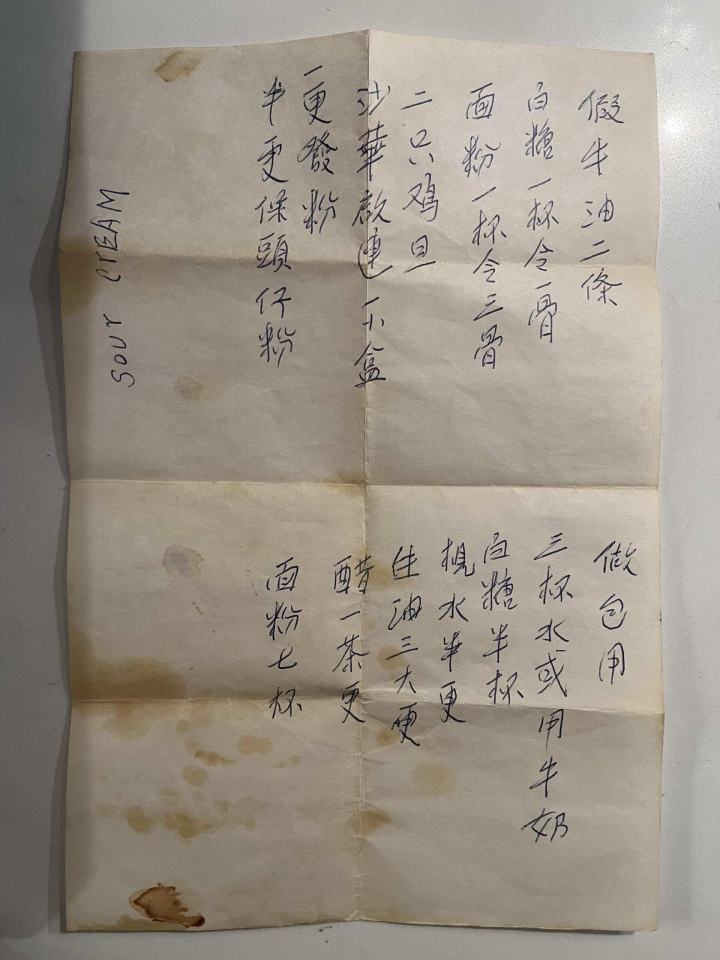 假牛油二條
白糖一杯令一骨
面粉一杯令三骨
二只鸡旦
沙華啟連一小盒
一更發粉
半更保頭仔粉
SOUR CREAM
做包用
三杯水或用牛奶
白糖半杯
梘水半更
生油三大更
醋一茶更
面粉七杯